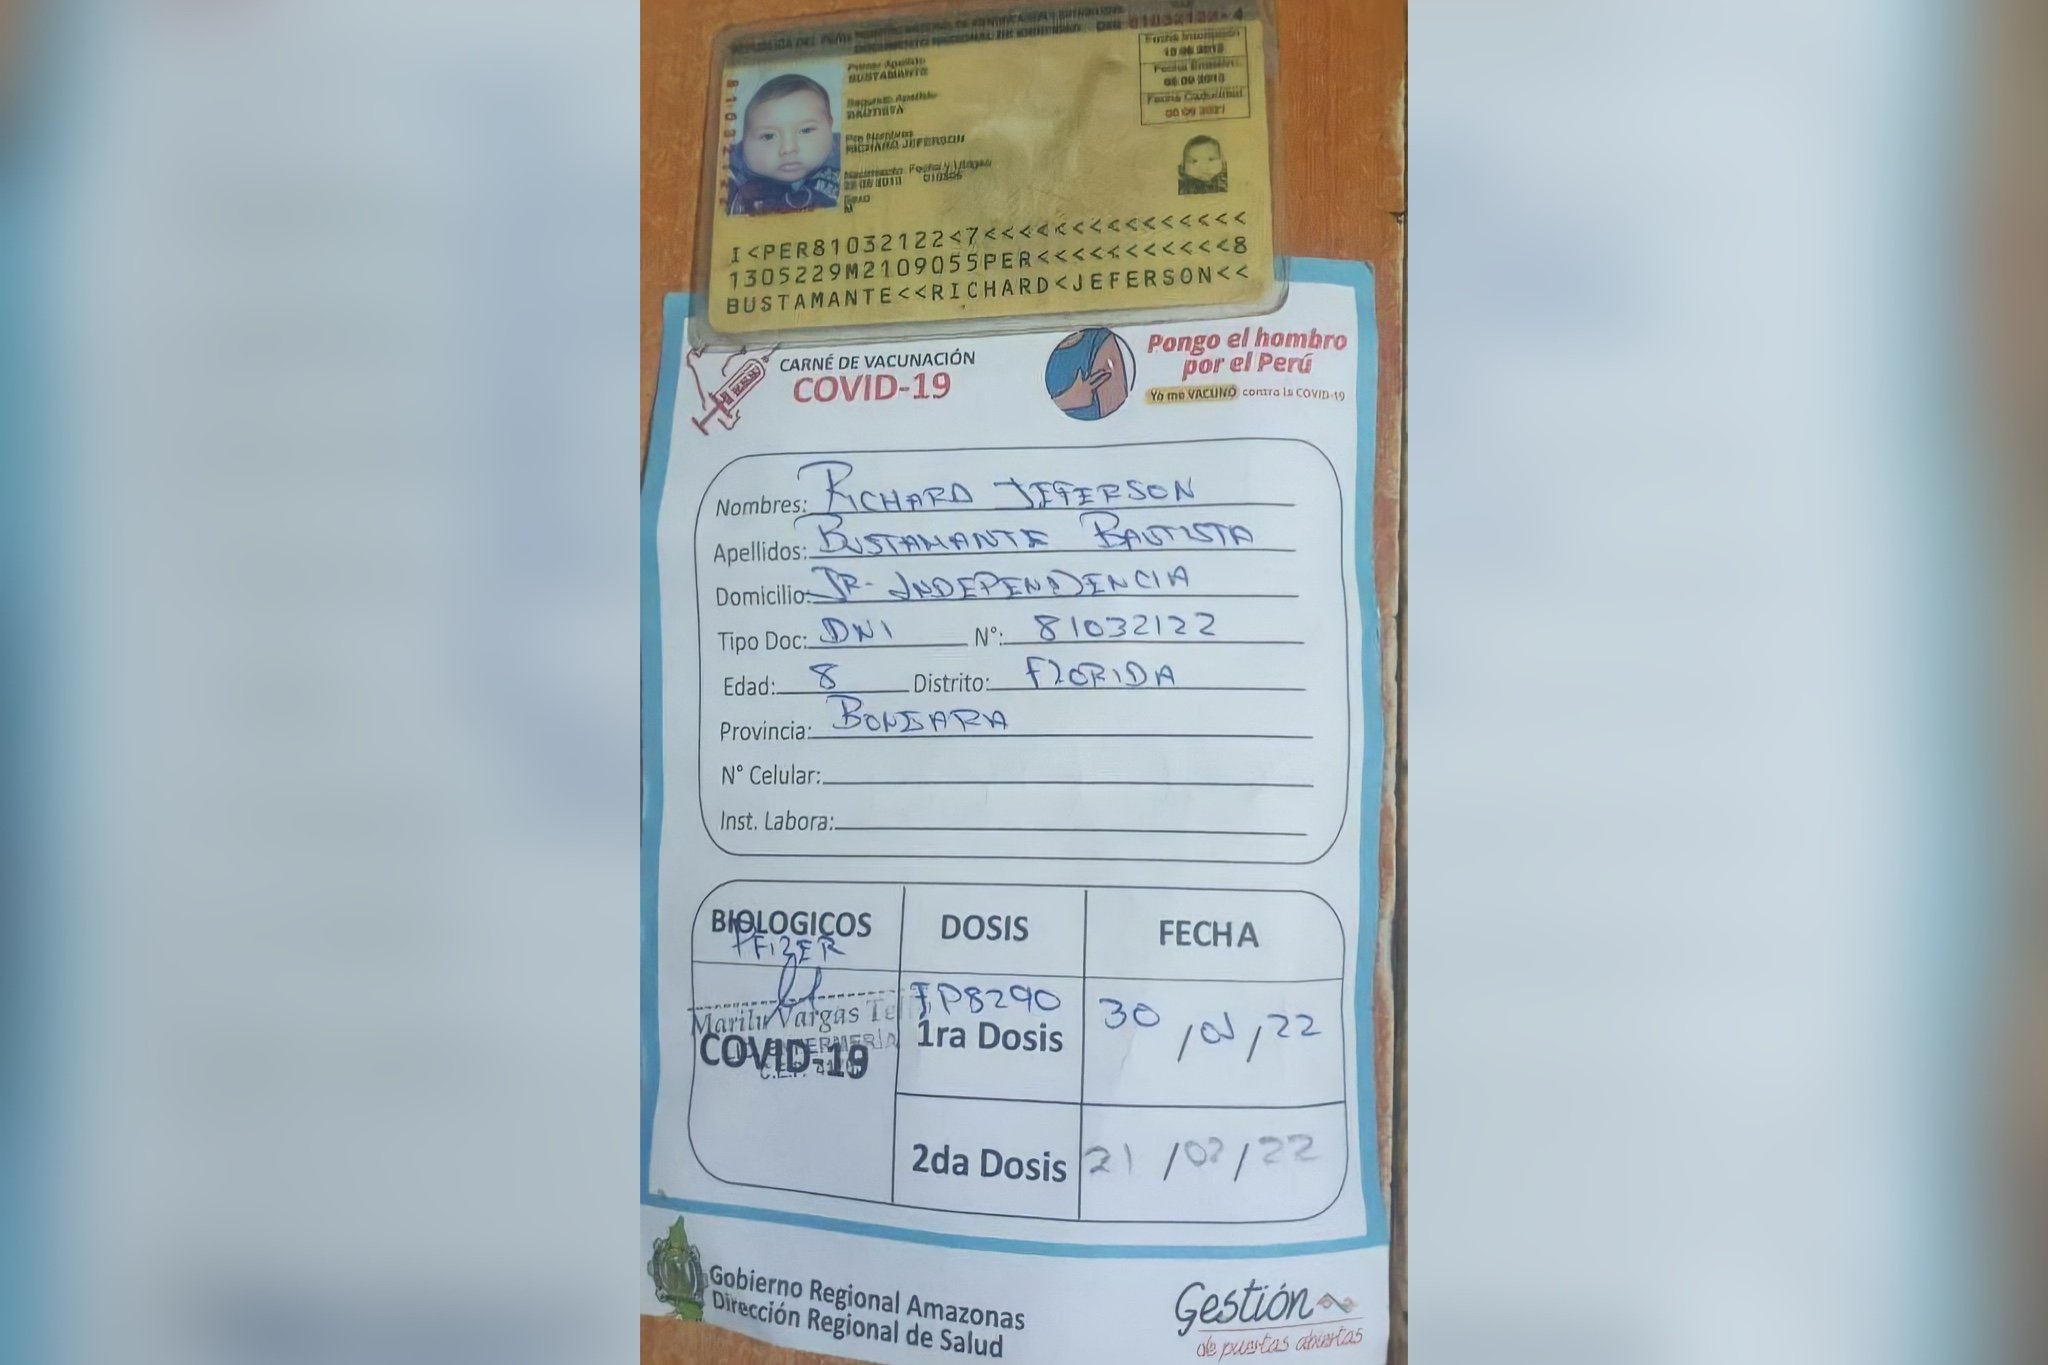 REPÚBLICA DEL PERÚ
DOCUMENTO NACIONAL DE IDENTIDAD
Primer Apellido
BUSTAMANTE
Segundo Apellido
BAUTISTA
Pre Nombres
RICHARD JEFERSON
Nacimiento: Fecha y Ubigeo
22 05 2013
Sexo
M
Fecha Inscripción
Fecha Emisión
Fecha Caducidad
I<PER81032122<7<<<<<<<<<<<<<<<
1305229M2109055PER<<<<<<<<<<<8
BUSTAMANTE<<RICHARD<JEFERSON<<
CARNÉ DE VACUNACIÓN
COVID-19
Pongo el hombro
por el Perú
Yo me VACUNO contra la COVID-19
Nombres: RICHARD JEFERSON
Apellidos: BUSTAMANTE BAUTISTA
Domicilio: JR. INDEPENDENCIA
Tipo Doc: DNI N°: 81032122
Edad: 8 Distrito: FLORIDA
Provincia: BONGARA
N° Celular:
Inst. Labora:
BIOLOGICOS DOSIS FECHA
PFIZER
FP8290
Marilu Vargas
COVID-19
1ra Dosis 30/01/22
2da Dosis 21/02/22
Gobierno Regional Amazonas
Dirección Regional de Salud
Gestión
de puertas abiertas